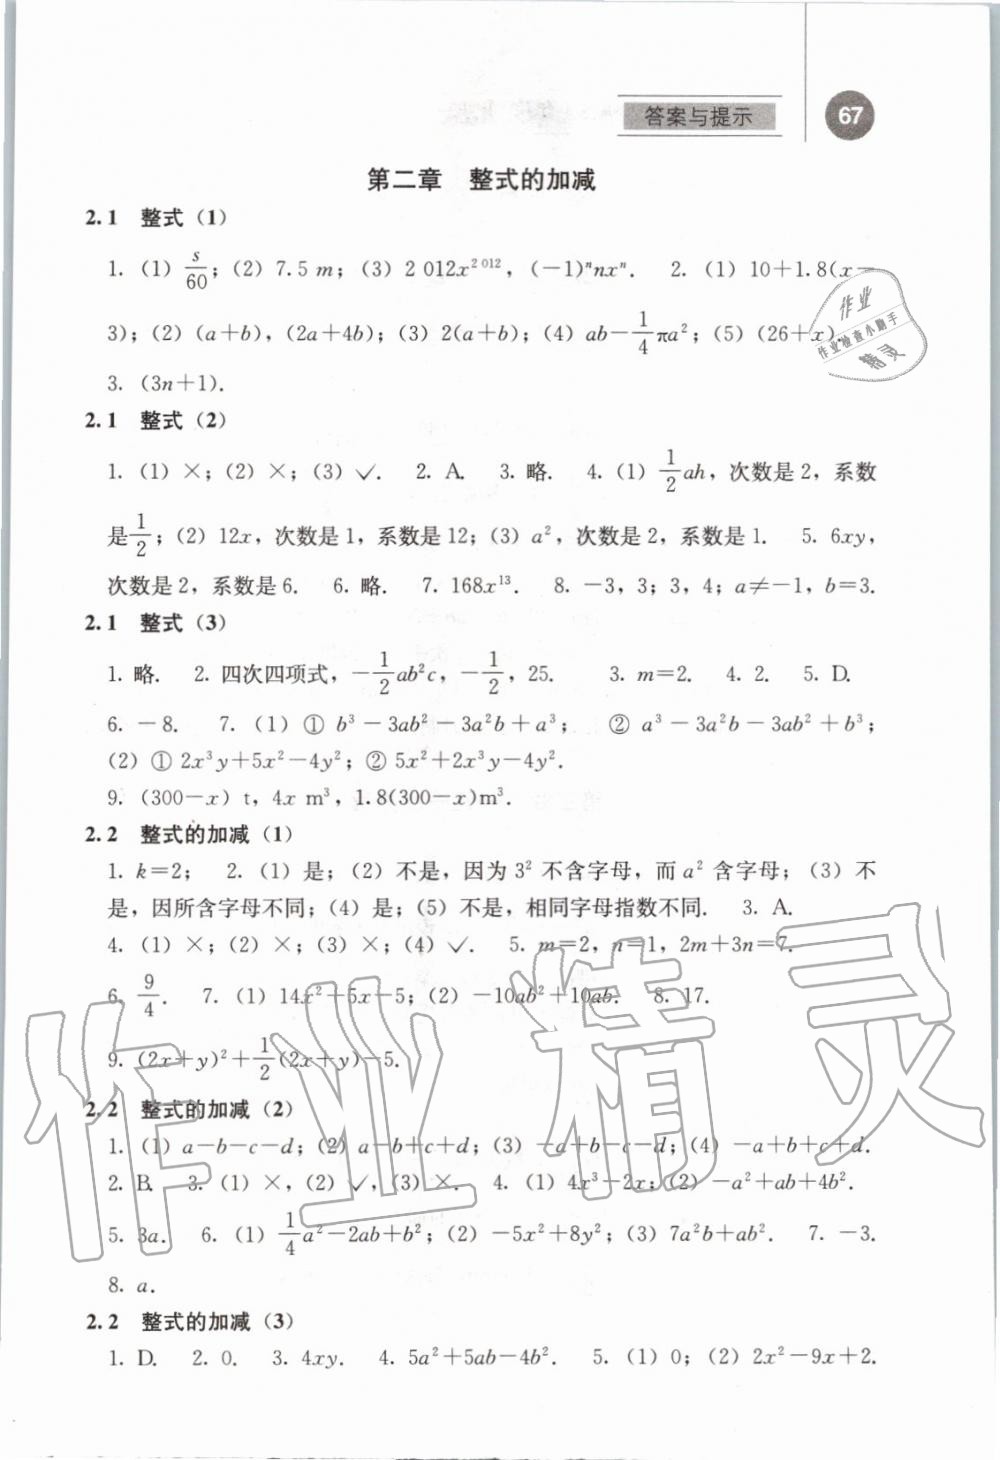 答案与提示
67
第二章 整式的加减
2.1 整式（1）
1.（1）s/60；（2）7.5 m；（3）2 012x^2 012，(－1)^n nx^n． 2.（1）10＋1.8(x－
3)；（2）(a＋b)，(2a＋4b)；（3）2(a＋b)；（4）ab－1/4 πa²；（5）(26＋x)．
3.（3n＋1）．
2.1 整式（2）
1.（1）×；（2）×；（3）✓． 2. A. 3. 略． 4.（1）1/2 ah，次数是 2，系数
是1/2；（2）12x，次数是 1，系数是 12；（3）a²，次数是 2，系数是 1． 5. 6xy，
次数是 2，系数是 6． 6. 略． 7. 168x¹³． 8. －3，3；3，4；a≠－1，b＝3.
2.1 整式（3）
1. 略． 2. 四次四项式，－1/2 ab²c，－1/2，25. 3. m＝2. 4. 2. 5. D.
6. －8. 7.（1）① b³－3ab²－3a²b＋a³； ② a³－3a²b－3ab²＋b³；
（2）① 2x³y＋5x²－4y²；② 5x²＋2x³y－4y²．
9.（300－x）t，4x m³，1.8(300－x)m³．
2.2 整式的加减（1）
1. k＝2； 2.（1）是；（2）不是，因为 3² 不含字母，而 a² 含字母；（3）不
是，因所含字母不同；（4）是；（5）不是，相同字母指数不同． 3. A.
4.（1）×；（2）×；（3）×；（4）✓． 5. m＝2，n＝1，2m＋3n＝7.
6. 9/4． 7.（1）14x²＋5x－5；（2）－10ab²＋10ab. 8. 17.
9. (2x＋y)²＋1/2(2x＋y)－5.
2.2 整式的加减（2）
1.（1）a－b－c－d；（2）a－b＋c＋d；（3）－a＋b－c－d；（4）－a＋b＋c＋d．
2. B. 3.（1）×，（2）✓，（3）×． 4.（1）4x³－2x；（2）－a²＋ab＋4b²．
5. 3a． 6.（1）1/4 a²－2ab＋b²；（2）－5x²＋8y²；（3）7a²b＋ab²． 7. －3.
8. a．
2.2 整式的加减（3）
1. D. 2. 0. 3. 4xy. 4. 5a²＋5ab－4b²． 5.（1）0；（2）2x²－9x＋2.
作业
作业检查小助手
精灵
作业精灵